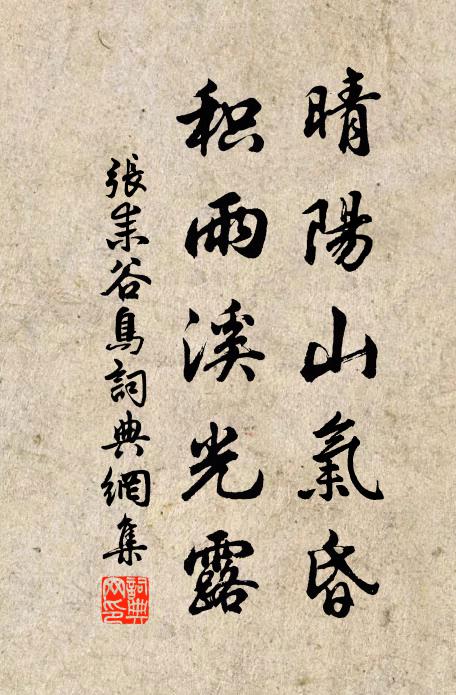 晴陽山氣昏
积雨溪光露
張耒谷鳥詞典網集
詞典
网印